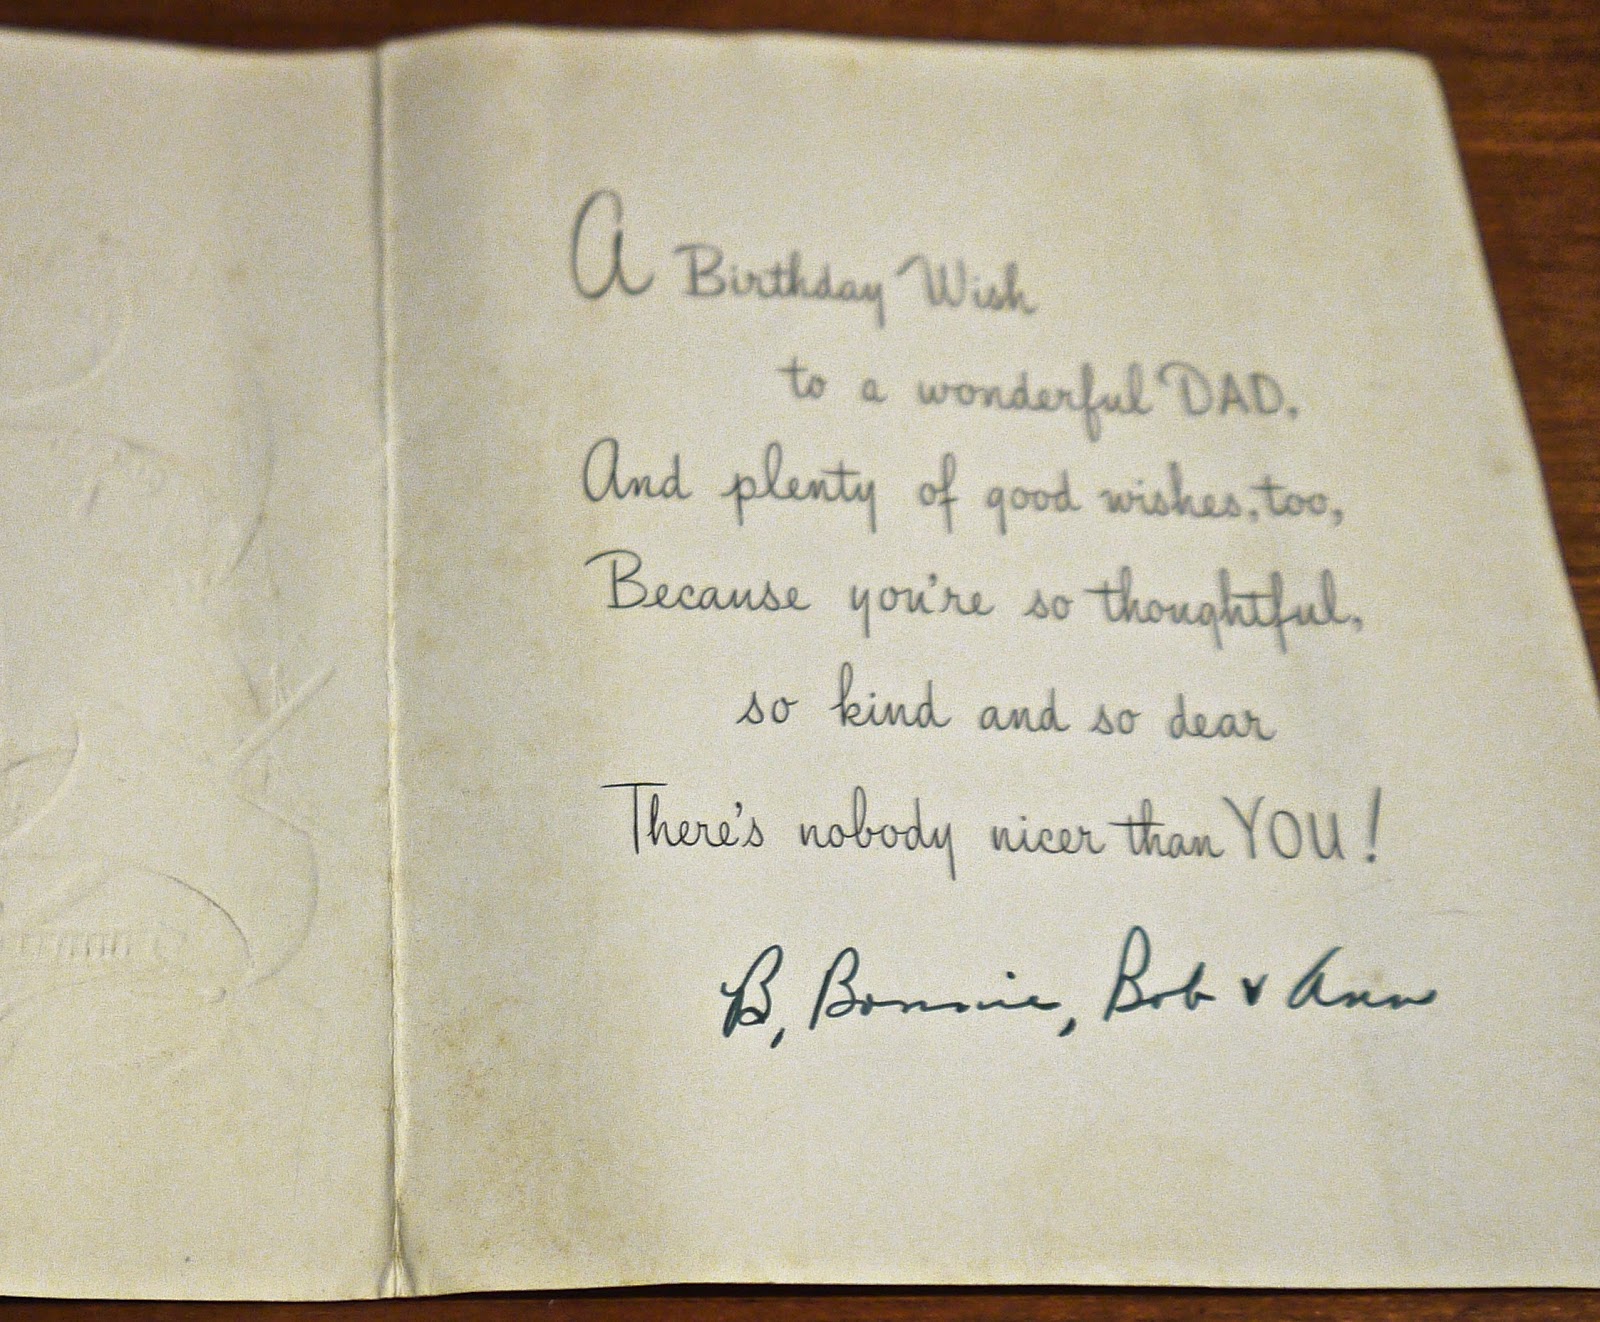 A Birthday Wish
to a wonderful DAD,
And plenty of good wishes, too,
Because you're so thoughtful,
so kind and so dear
There's nobody nicer than YOU!
B, Bonnie, Bob & Ann